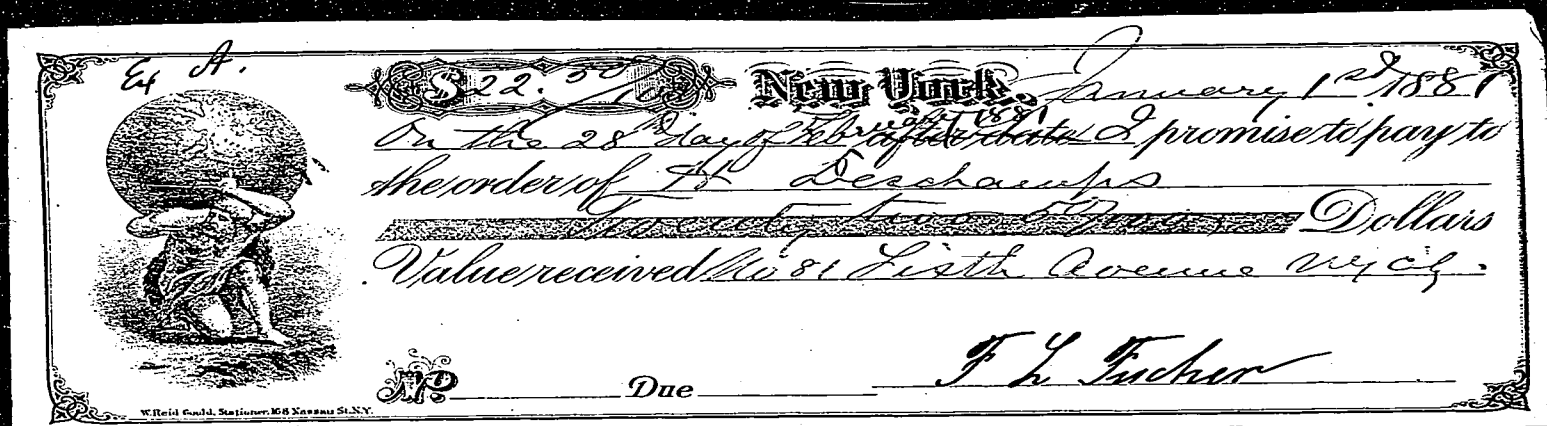 Ex A.
$22.50/100 New York, January 1st 1881
On the 28th day of February 1881 after date I promise to pay to
the order of H Deschamps
Twenty two 50/100 Dollars
Value received No 81 Sixth Avenue NY City.
F L Fucher
No Due
W. Reid Gould, Stationer, 168 Nassau St. N.Y.